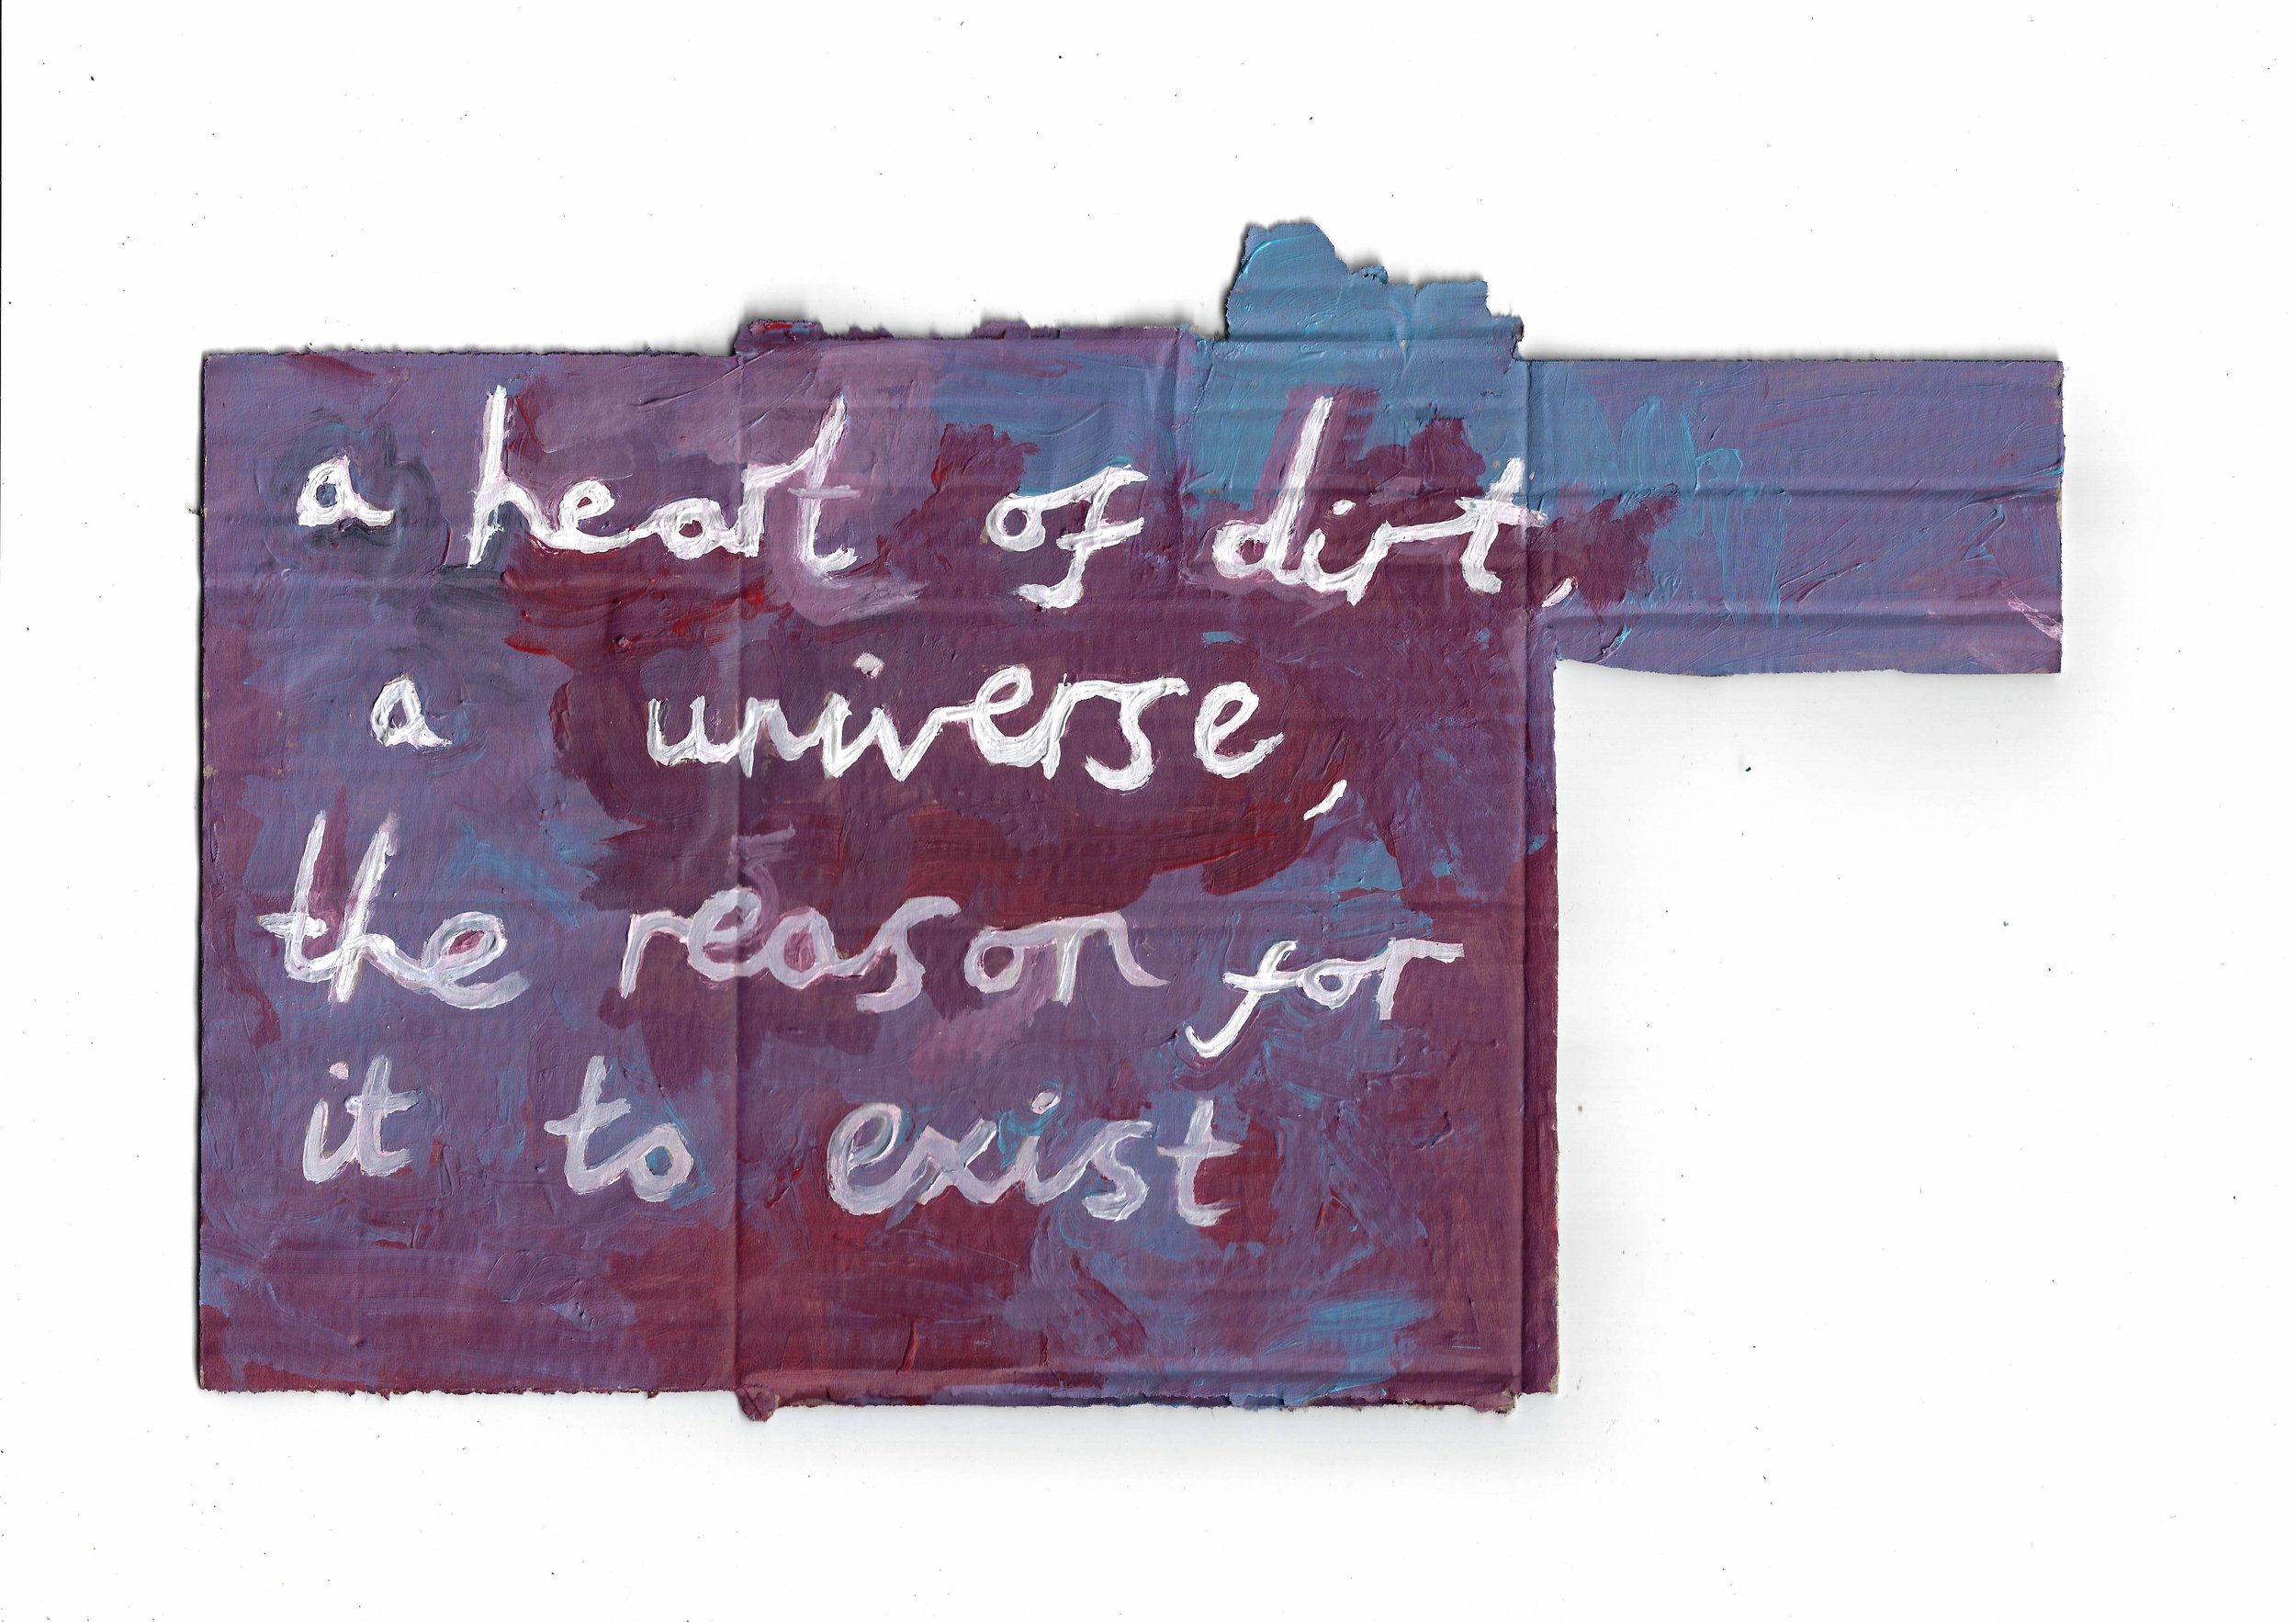 a heart of dirt,
a universe,
the reason for
it to exist